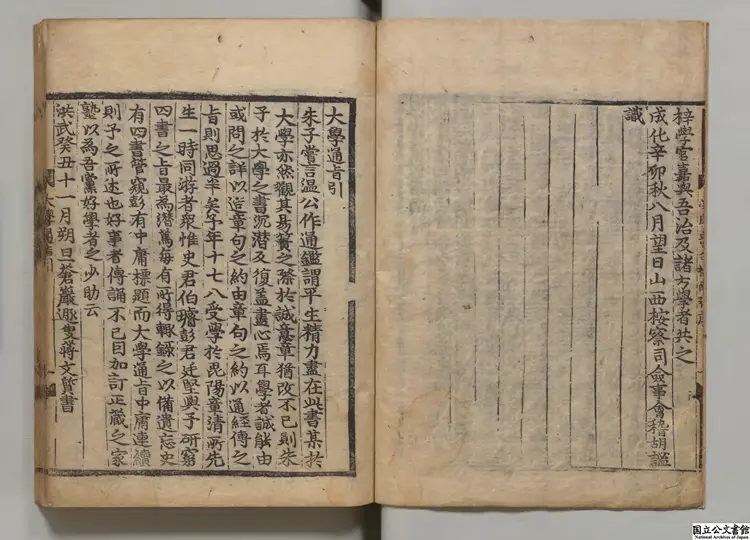 梓學官嘉與吾治及諸方學者共之
成化辛卯秋八月望日山西按察司僉事會稽胡謐
識
大學通旨引
朱子嘗言温公作通鑑謂平生精力盡在此書某於
大學亦然觀其易簀之際於誠意章猶改不已則朱
子於大學之書沉潜反復盖盡心焉耳學者誠能由
或問之詳以造章句之約由章句之約以通經傳之
旨則思過半矣予年十七八受學於毘陽章清所先
生一時同游者衆惟史君伯璿彭君廷堅與予研窮
四書之旨最為潜篤每有所得輙録之以備遺忘史
有四書管窺彭有中庸標題而大學通旨中庸連續
則予之所述也好事者傳誦不已因加訂正蔵之家
塾以為吾黨好學者之少助云
洪武癸丑十一月朔旦蒼巖遯叟蔣文質書
大學通旨引
国立公文書館
National Archives of Japan